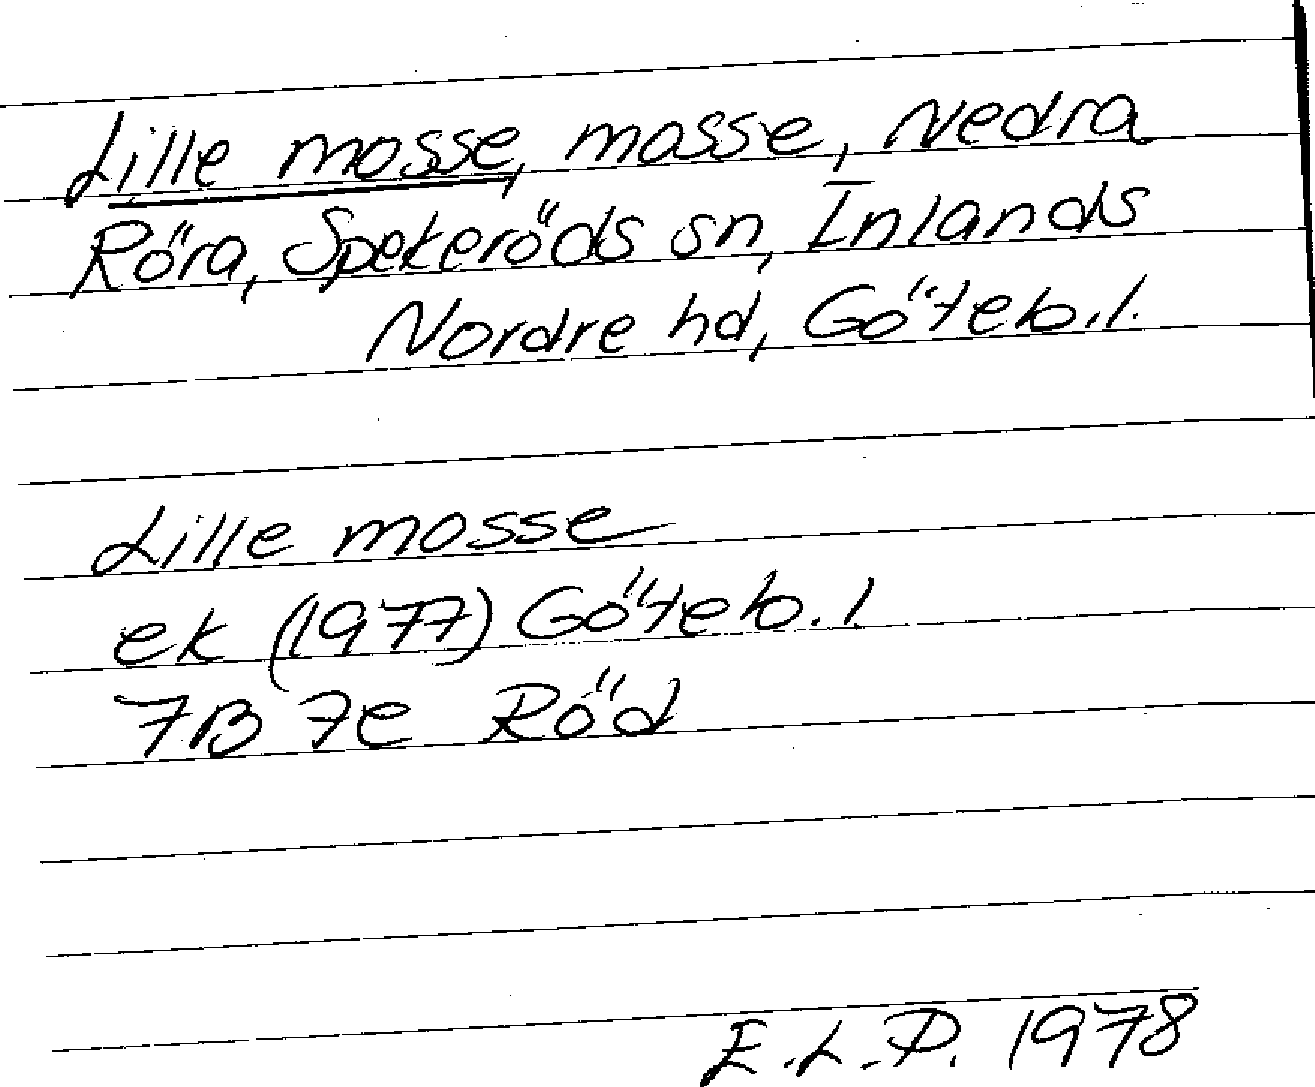 Lille mosse, mosse, Nedra
Röra, Spekeröds sn, Inlands
Nordre hd, Göteb.l.
Lille mosse
ek (1977) Göteb.l.
7B 7e Röd
E.L.P. 1978